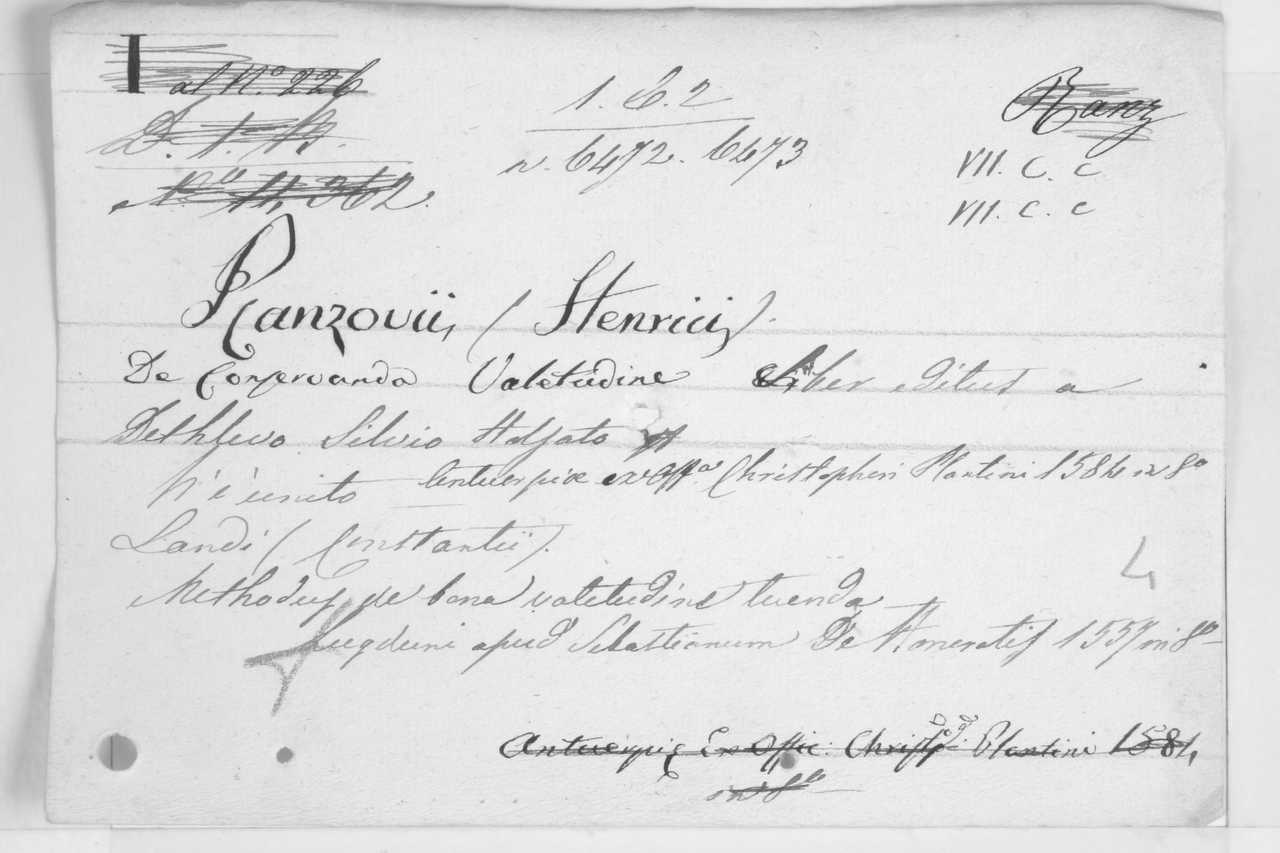 al N.º 226
1. C. 2
Ranz
D. 1. B.
n. 6472. 6473
VII. C. C
Nº 11,362.
VII. C. C
Ranzovii, (Henrici).
De Conservanda Valetudine Liber editus a
Dethlevo Silvio Holsato
Antuerpiæ ex Offª Christopheri Plantini 1584 in 8º
V'è unito
Landi (Constantii).
Methodus de bona valetudine tuenda
4
Lugduni apud Sebastianum De Honoratis 1557 in 8º
Antuerpiæ Ex Offic. Christ. Plantini 1584
in 8º